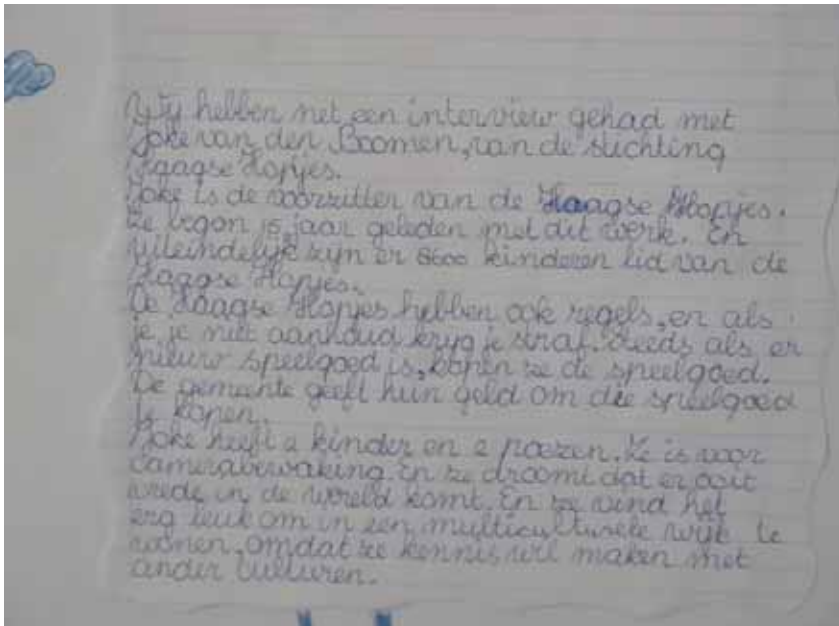 Wij hebben net een interview gehad met
Joke van den Boomen, van de stichting
Haagse Hopjes.
Joke is de voorzitter van de Haagse Hopjes.
Ze begon 15 jaar geleden met dit werk. En
uiteindelijk zijn er 8600 kinderen lid van de
Haagse Hopjes.
De Haagse Hopjes hebben ook regels, en als
je je niet aanhoud kryg je straf. Steeds als er
nieuw speelgoed is, kopen ze de speelgoed.
De gemeente geeft hun geld om die speelgoed
te kopen.
Joke heeft 2 kinder en 2 poezen. Ze is voor
camerabewaking. En ze droomt dat er ooit
vrede in de wereld komt. En ze vind het
erg leuk om in een multiculturele wijk te
wonen, omdat ze kennis wil maken met
ander culturen.